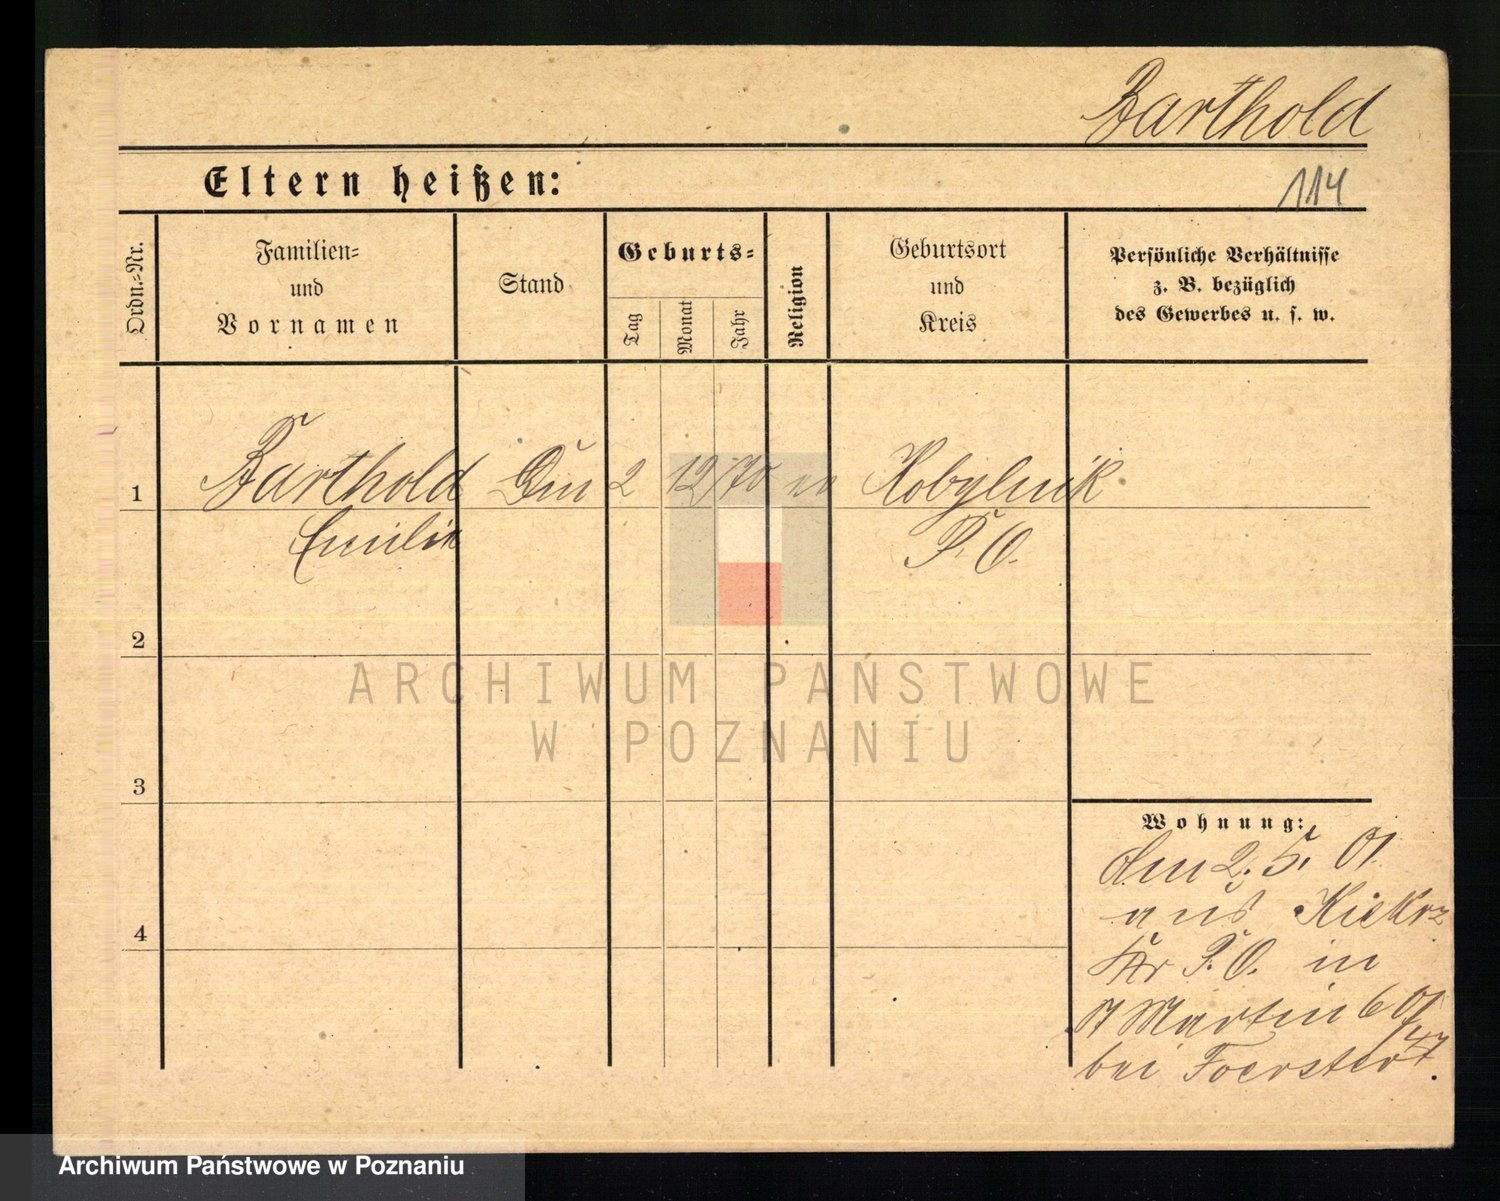 Barthold
Eltern heißen:
114
Ordn.-Nr.
Familien-
und
Vornamen
Stand
Geburts-
Tag
Monat
Jahr
Religion
Geburtsort
und
Kreis
Persönliche Verhältnisse
z. B. bezüglich
des Gewerbes u. s. w.
1
Barthold
Emilie
2 12 70 ev
Kobylnik
P. O.
2
3
4
Wohnung:
den 2. 5. 01
aus Kiekrz
Kr P. O. in
St Martin 6
bei Foerster
ARCHIWUM PAŃSTWOWE
W POZNANIU
Archiwum Państwowe w Poznaniu